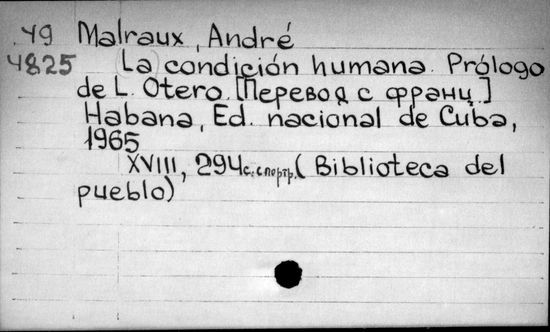 49 Malraux, André
4825 La condición humana. Prólogo
de L. Otero. [Перевод с франц.]
Habana, Ed. nacional de Cuba,
1965
XVIII, 294 с. с портр. (Biblioteca del
pueblo)